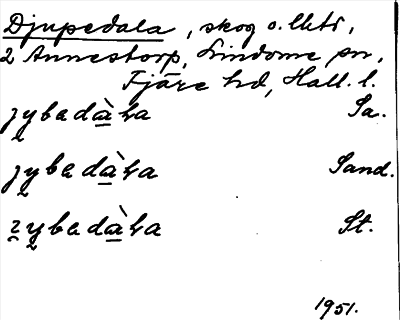 Djupedala, skog o. lht,
2 Annestorp, Lindome sn,
Fjäre hd, Hall. l.
jybadàɫa Sa.
jybadàɫa Sand.
ybadàɫa St.
1951.